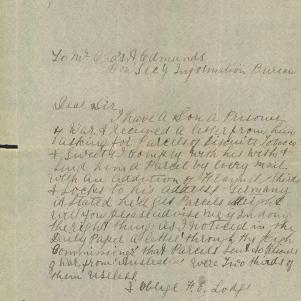 To Mr Chas A. Edmunds
Hon Secy Information Bureau
Dear Sir
I have a Son a Prisoner
of War & recieved a letter from him
asking for Parcels of Biscuits Tobacco
& Sweets I comply with his wish &
send him a Parcel by every mail
with an addition of Flannel Shirts
& Socks to his address Germany
stated he'd get Parcels alright
will you please advise me if Im doing
the right thing as I noticed in the
Daily Paper a letter through the High
Commissioner that Parcels sent to Prisoners
of War from Australia were two thirds of
them useless
& Oblige F. E. Lodge